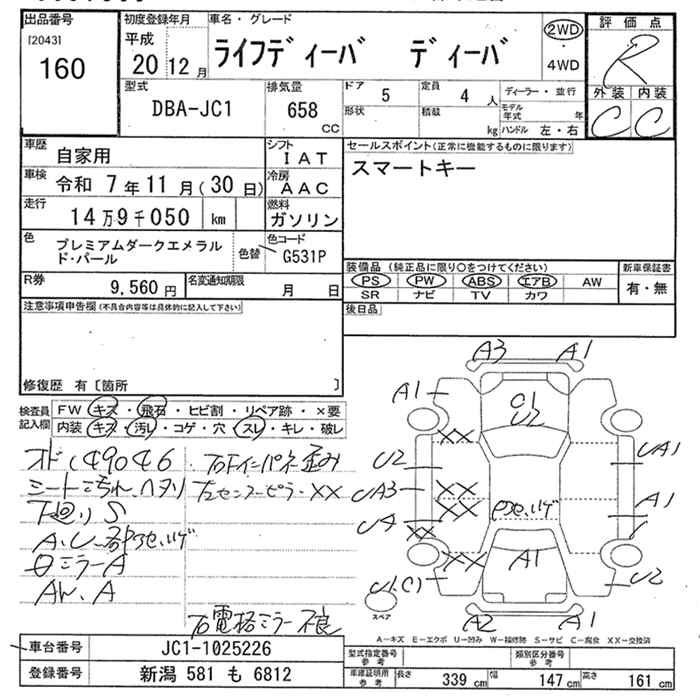 出品番号
[2043]
160
初度登録年月
平成
20 12月
車名・グレード
ライフディーバ ディーバ
2WD
・
4WD
評価点
R
外装 内装
C C
型式
DBA-JC1
排気量
658
CC
ドア 5
形状
定員 4 人
積載 kg
ディーラー・並行
モデル年式 年
ハンドル 左・右
車歴 自家用
シフト IAT
車検 令和 7年11月(30日)
冷房 AAC
走行 14万9千050 km
燃料 ガソリン
色 プレミアムダークエメラルド・パール
色替
色コード G531P
R券 9,560円
名変通知期限 月 日
セールスポイント(正常に機能するものに限ります)
スマートキー
装備品(純正品に限り○をつけてください)
PS PW ABS エアB AW
SR ナビ TV カワ
新車保証書
有・無
後日品
注意事項申告欄(不具合内容等は具体的に記入して下さい)
修復歴 有〔箇所 〕
検査員記入欄
FW キズ・飛石・ヒビ割・リペア跡・×要
内装 キズ・汚レ・コゲ・穴・スレ・キレ・破レ
149046
シート汚れ、ヘタリ
下廻りS
ミラーA
AW.A
右電格ミラー不良
A3 A1
A1
C1
U2
XX
U2
UA1
UA3
XX
UA
XX
A1
XX
XX
A1
U2
U1(C)
A2 A1
スペア
A-キズ E-エクボ U-凹み W-補修跡 S-サビ C-腐食 XX-交換済
車台番号 JC1-1025226
登録番号 新潟 581 も 6812
型式指定番号
参考
類別区分番号
参考
車庫証明用
参考
長さ 339 cm 幅 147 cm 高さ 161 cm